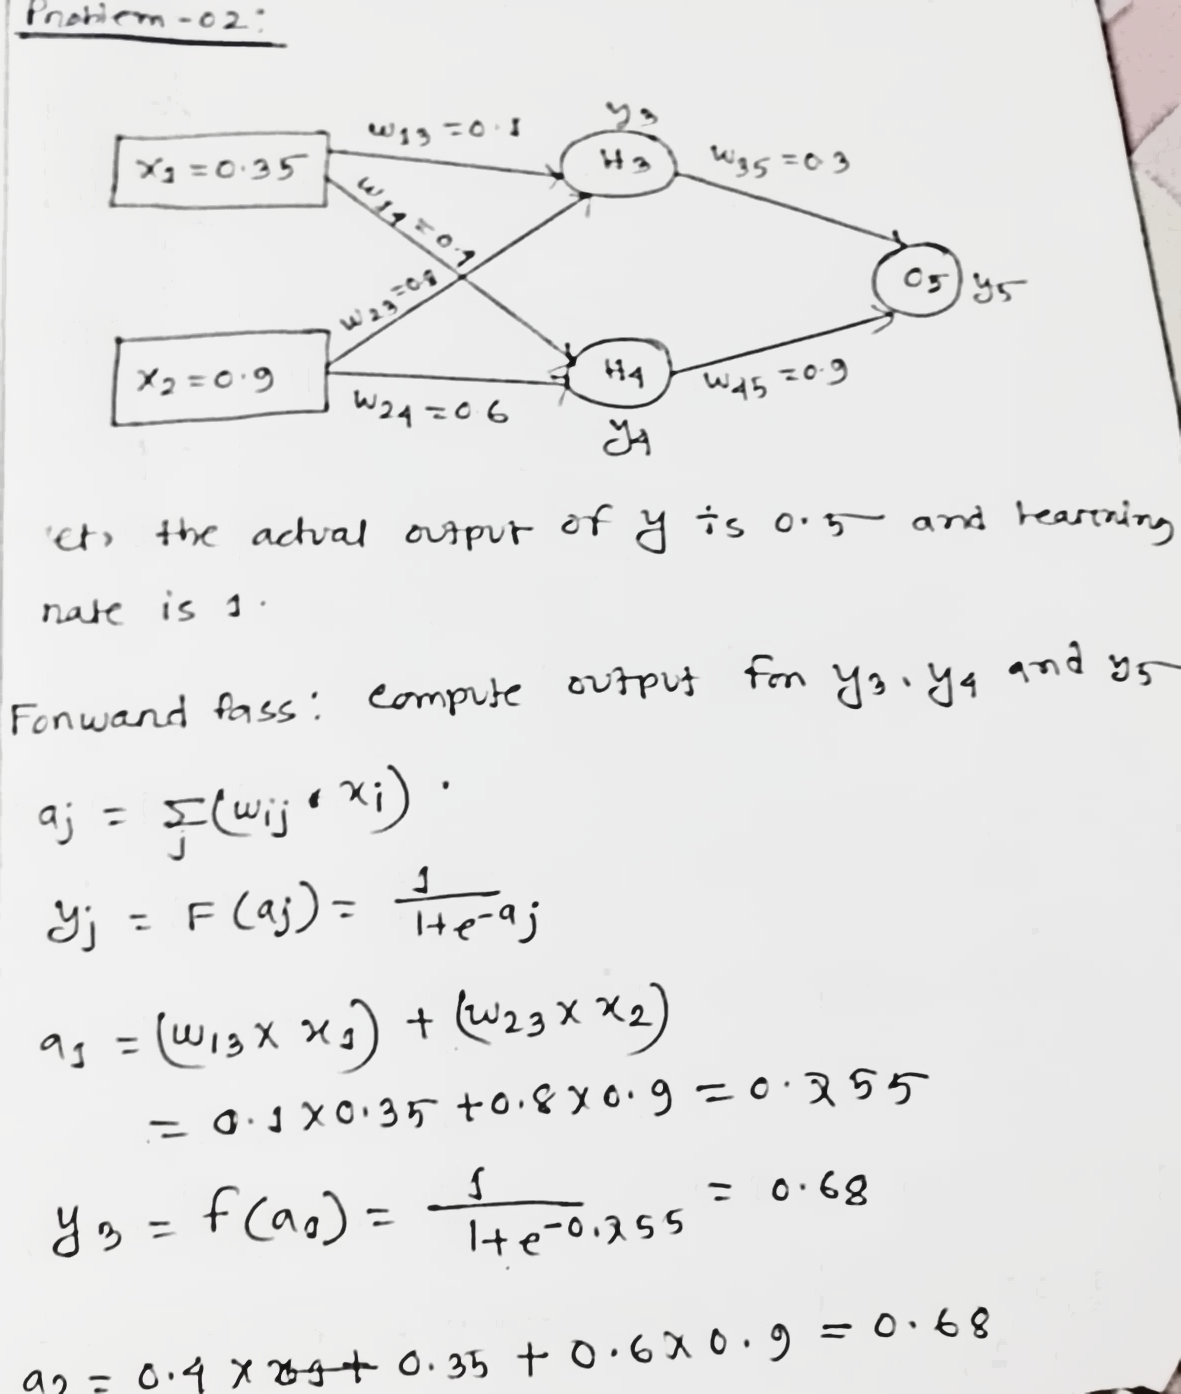 Problem-02:
y3
w13 = 0.1
x1 = 0.35
H3
w35 = 0.3
w14 = 0.4
w23 = 0.8
O5 y5
x2 = 0.9
H4
w24 = 0.6
w45 = 0.9
y4
the actual output of y is 0.5 and learning
rate is 1.
Forward Pass: compute output for y3, y4 and y5
aj = Σj (wij * xi).
yj = F(aj) = 1/(1+e^-aj)
a1 = (w13 × x1) + (w23 × x2)
= 0.1 × 0.35 + 0.8 × 0.9 = 0.755
y3 = f(a1) = 1/(1+e^-0.755) = 0.68
a2 = 0.4 × 0.35 + 0.6 × 0.9 = 0.68